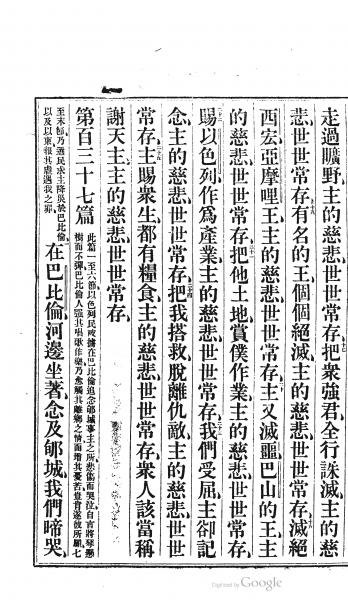 走過曠野主的慈悲世世常存把衆強君全行誅滅主的慈
悲世世常存有名的王個個絕滅主的慈悲世世常存滅絕
西宏亞摩哩王主的慈悲世世常存主又滅噩巴山的王主
的慈悲世世常存把他土地賞僕作業主的慈悲世世常存
賜以色列作爲產業主的慈悲世世常存我們受屈主卻記
念主的慈悲世世常存把我搭救脫離仇敵主的慈悲世世
常存主賜衆生都有糧食主的慈悲世世常存衆人該當稱
謝天主主的慈悲世世常存
第百三十七篇 此篇一至六節以色列民被擄在巴比倫追念郇城事主之所悲傷而哭泣自言將琴懸
樹而不彈巴比倫人强其唱歌作樂乃愈觸其離鄉之情而增其憂苦豈肯遂彼所願七
至末節乃選民求主降災於巴比倫
以及以東報其虐遇我之罪
在巴比倫河邊坐著念及郇城我們啼哭
Digitized by Google